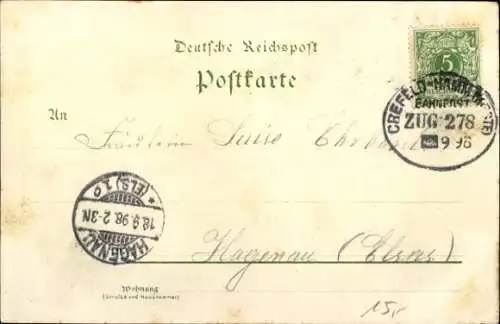 Deutsche Reichspost
Postkarte
5
CREFELD-HAMM (WESTF)
BAHNPOST
ZUG 278
9 98
An
Fräulein Luise
Hagenau (Elsas)
HAGENAU
18.9.98.2-3N
* (ELS) 1 c
Wohnung
(Straße und Hausnummer)
15,-